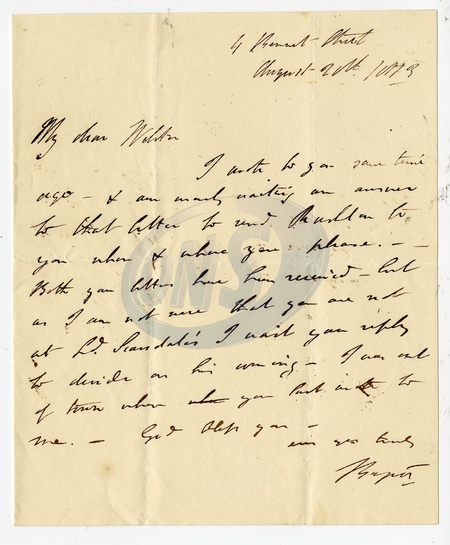 4 Bennet Street
August 20th. 1813
My dear Webster
I wrote to you some time
ago - & am merely waiting an answer
to that letter to send Rushton to
you when & where you please. - -
Both your letters have been received - but
as I am not sure that you are not
at Ld. Scarsdale's I wait your reply
to decide on his coming - I was out
of town when you last to
me. - God bless you -
ever yrs truly